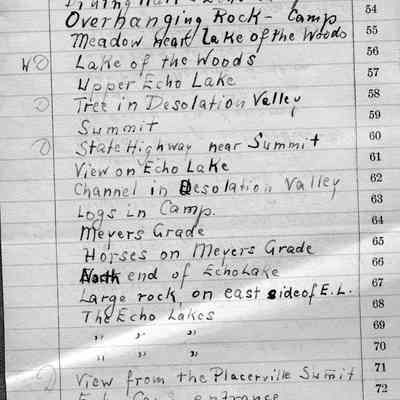 Dining Hall
Overhanging Rock - Camp 54
Meadow near Lake of the Woods 55
WD Lake of the Woods 56
Upper Echo Lake 57
D Tree in Desolation Valley 58
Summit 59
D State Highway near Summit 60
View on Echo Lake 61
Channel in Desolation Valley 62
Logs in Camp. 63
Meyers Grade 64
Horses on Meyers Grade 65
North end of Echo Lake 66
Large rock on east side of E.L. 67
The Echo Lakes 68
" " " 69
" " " 70
D View from the Placerville Summit 71
entrance 72